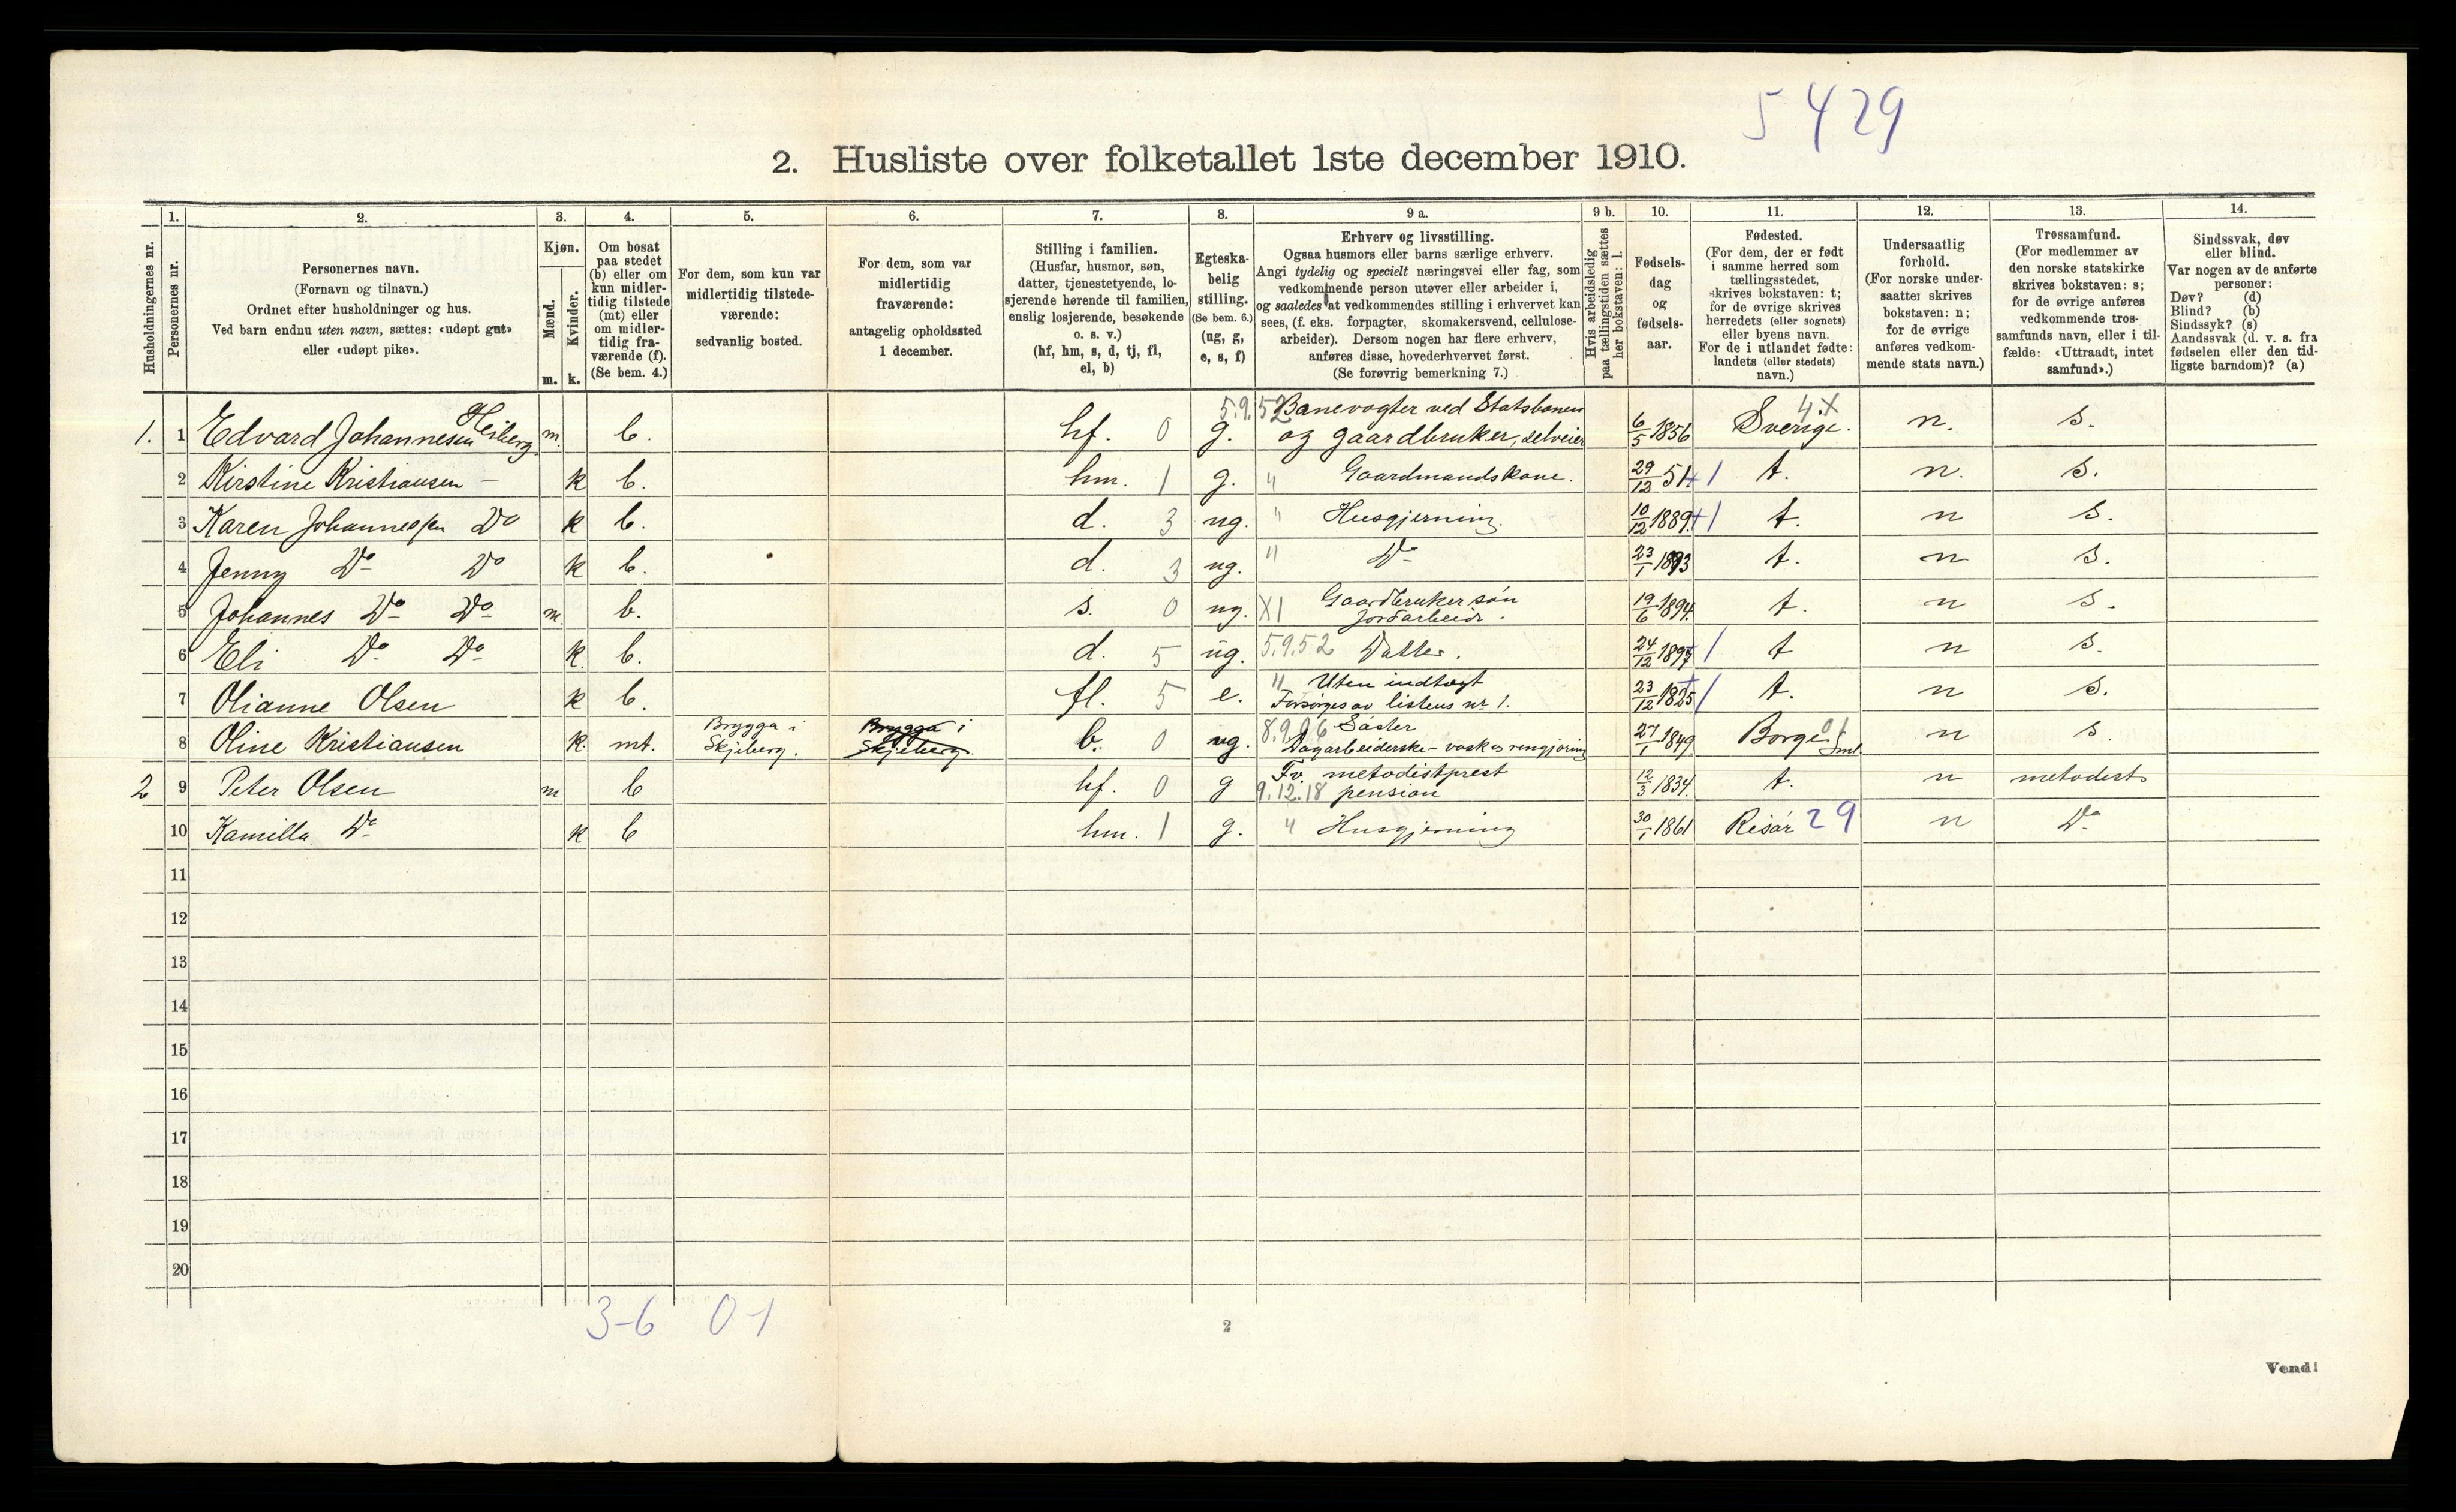 5429
2. Husliste over folketallet 1ste december 1910.
Husholdningernes nr.
1.
Personernes nr.
2.
Personernes navn.
(Fornavn og tilnavn.)
Ordnet efter husholdninger og hus.
Ved barn endnu uten navn, sættes: «udøpt gut»
eller «udøpt pike».
3.
Kjøn.
Mænd.
m.
Kvinder.
k.
4.
Om bosat
paa stedet
(b) eller om
kun midler-
tidig tilstede
(mt) eller
om midler-
tidig fra-
værende (f).
(Se bem. 4.)
5.
For dem, som kun var
midlertidig tilstede-
værende:
sedvanlig bosted.
6.
For dem, som var
midlertidig
fraværende:
antagelig opholdssted
1 december.
7.
Stilling i familien.
(Husfar, husmor, søn,
datter, tjenestetyende, lo-
sjerende hørende til familien,
enslig losjerende, besøkende
o. s. v.)
(hf, hm, s, d, tj, fl,
el, b)
8.
Egteska-
belig
stilling.
(Se bem. 6.)
(ug, g,
e, s, f)
9 a.
Erhverv og livsstilling.
Ogsaa husmors eller barns særlige erhverv.
Angi tydelig og specielt næringsvei eller fag, som
vedkommende person utøver eller arbeider i,
og saaledes at vedkommendes stilling i erhvervet kan
sees, (f. eks. forpagter, skomakersvend, cellulose-
arbeider). Dersom nogen har flere erhverv,
anføres disse, hovederhvervet først.
(Se forøvrig bemerkning 7.)
9 b.
Hvis arbeidsledig
paa tællingstiden sættes
her bokstaven: l.
10.
Fødsels-
dag
og
fødsels-
aar.
11.
Fødested.
(For dem, der er født
i samme herred som
tællingsstedet,
skrives bokstaven: t;
for de øvrige skrives
herredets (eller sognets)
eller byens navn.
For de i utlandet fødte:
landets (eller stedets)
navn.)
12.
Undersaatlig
forhold.
(For norske under-
saatter skrives
bokstaven: n;
for de øvrige
anføres vedkom-
mende stats navn.)
13.
Trossamfund.
(For medlemmer av
den norske statskirke
skrives bokstaven: s;
for de øvrige anføres
vedkommende tros-
samfunds navn, eller i til-
fælde: «Uttraadt, intet
samfund».)
14.
Sindssvak, døv
eller blind.
Var nogen av de anførte
personer:
Døv? (d)
Blind? (b)
Sindssyk? (s)
Aandssvak (d. v. s. fra
fødselen eller den tid-
ligste barndom)? (a)
1. 1 Edvard Johannesen Heiberg m. b. hf. 0 g. 5.9.52 Banevogter ved Statsbanen
og gaardbruker, selveier 6/5 1856 Sverige. 4.X n. s.
2 Kirstine Kristiansen - k b. hm. 1 g. " Gaardmandskone. 29/12 51 + 1 t. n. s.
3 Karen Johannessen Do k b. d. 3 ug. " Husgjerning. 10/12 1889 + 1 t. n s.
4 Jenny Do Do k b. d. 3 ug. " Do 23/1 1893 t. n s.
5 Johannes Do Do m. b. s. 0 ug. XI Gaardbruker søn
Jordarbeide. 19/6 1894. t. n s.
6 Eli Do Do k. b. d. 5 ug. 5.9.52 Datter. 24/12 1897 1 t n s.
7 Olianne Olsen k b. fl. 5 e. " Uten indtægt
Forsørges av listens nr 1. 23/12 1825 1 t. n s.
8 Oline Kristiansen k. mt. Brygga i
Skjeberg. Brygga i
Skjeberg. b. 0 ug. 8.9.06 Søster
Dagarbeiderske - vask og rengjøring 27/1 1849 Borge Sml. 01 n s.
2 9 Peter Olsen m b hf. 0 g Fv. metodistprest
9.12.18 pension 12/3 1834. t. n metodist
10 Kamilla Do k b hm. 1 g. " Husgjerning 30/1 1861 Risør 29 n Do
11
12
13
14
15
16
17
18
19
20
3-6 0-1
2
Vend!